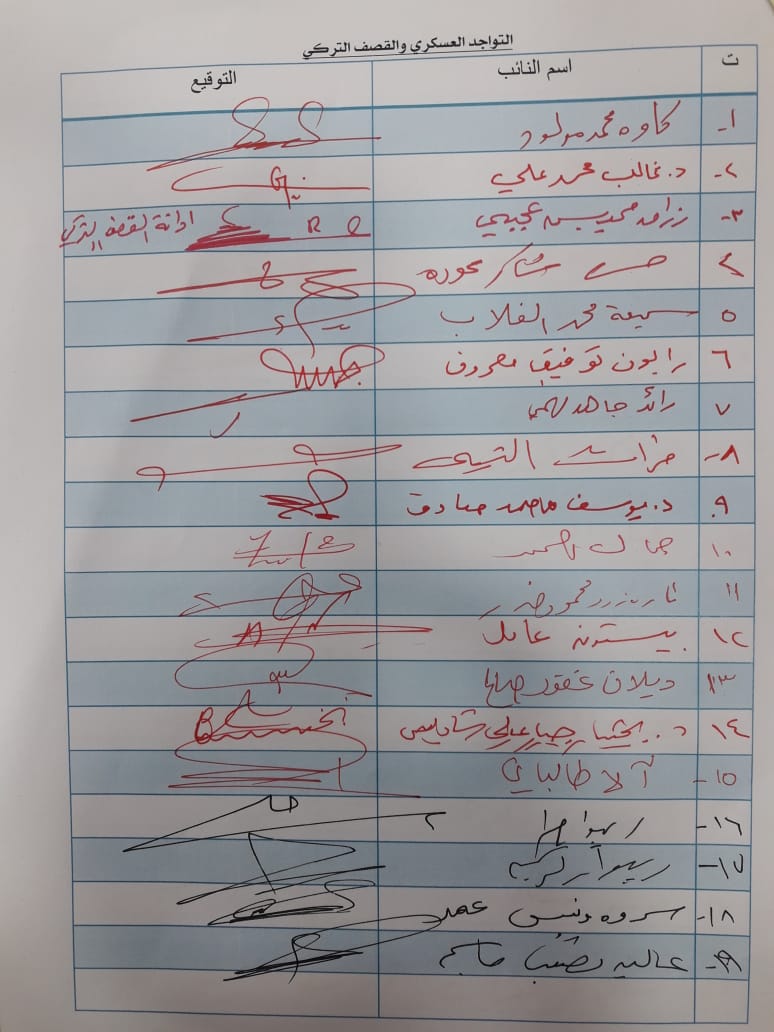 التواجد العسكري والقصف التركي
ت اسم النائب التوقيع
١- كاوه محمد مولود
٢- د. غالب محمد علي
٣- محمد ادانة القصف التركي
٤ حسن شاكر عوده
٥ سميعة محمد الغلاب
٦ رابون توفيق معروف
٧ رائد جاهد فهمي
٨-
٩. د. يوسف محمد صادق
١٠ جمال احمد
١١ محمود
١٢ بيستون عادل
١٣ ديلان غفور صالح
١٤ د. جبار علي
١٥- آلا طالباني
١٦- ريبوار
١٧- ريبوار كريم
١٨- سروه يونس عمر
١٩- عاليه نصيف جاسم